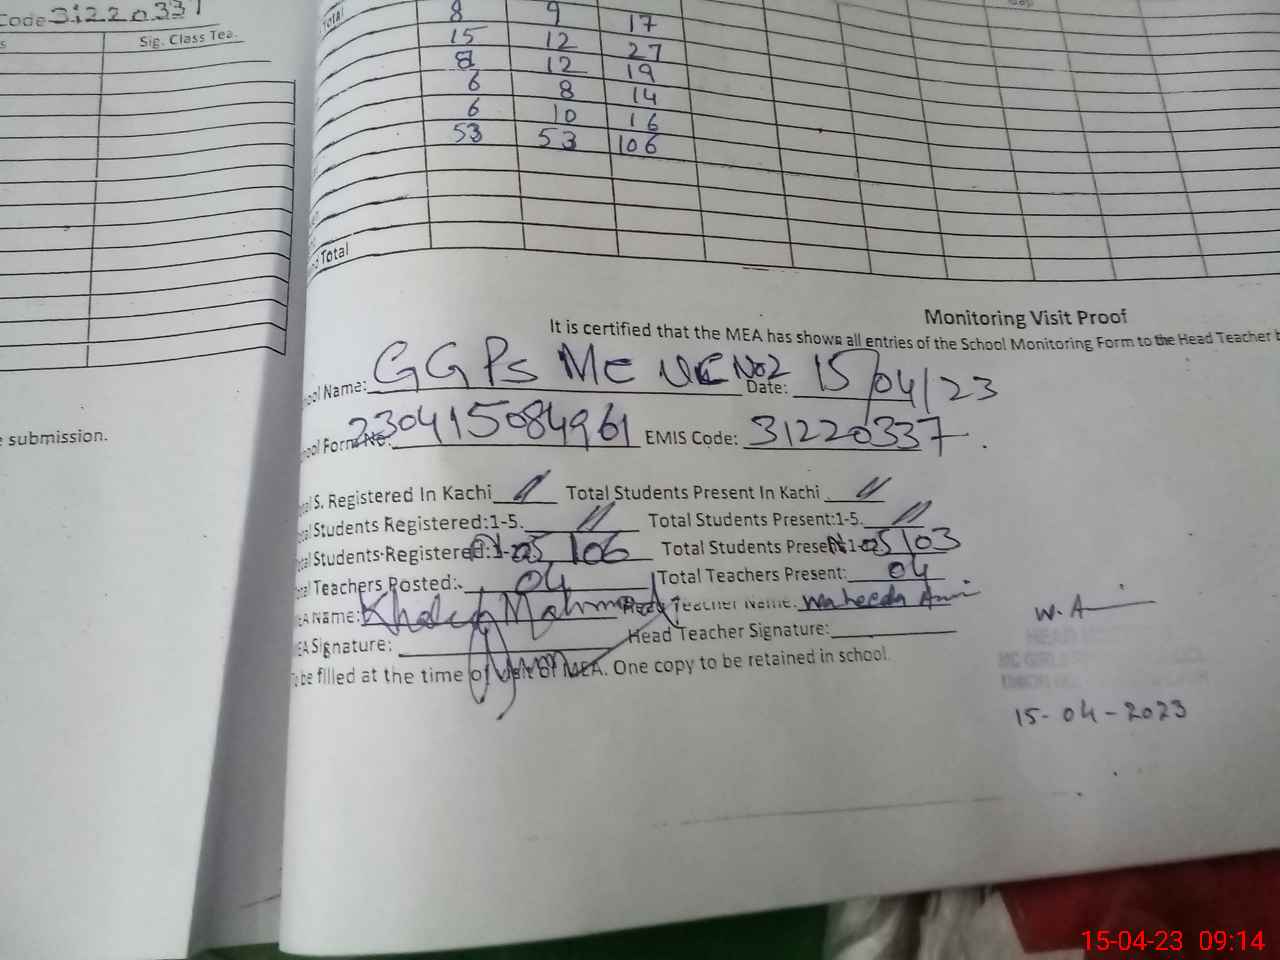 Code 31220337
Sig. Class Tea.
Total 8 9 17
15 12 27
8 12 19
6 8 14
6 10 16
53 53 106
Total
Monitoring Visit Proof
It is certified that the MEA has shown all entries of the School Monitoring Form to the Head Teacher
Name: GGPS MC UC No2 Date: 15/04/23
e submission.
Form No: 230415084961 EMIS Code: 31220337
S. Registered In Kachi // Total Students Present In Kachi //
Students Registered:1-5. // Total Students Present:1-5. //
Students Registered: 106 Total Students Present 103
Teachers Posted: 04 Total Teachers Present: 04
Name: Khalid Mahmood Head Teacher Name: Waheeda
W.A
Signature: Head Teacher Signature:
be filled at the time of visit of MEA. One copy to be retained in school.
15-04-2023
15-04-23 09:14